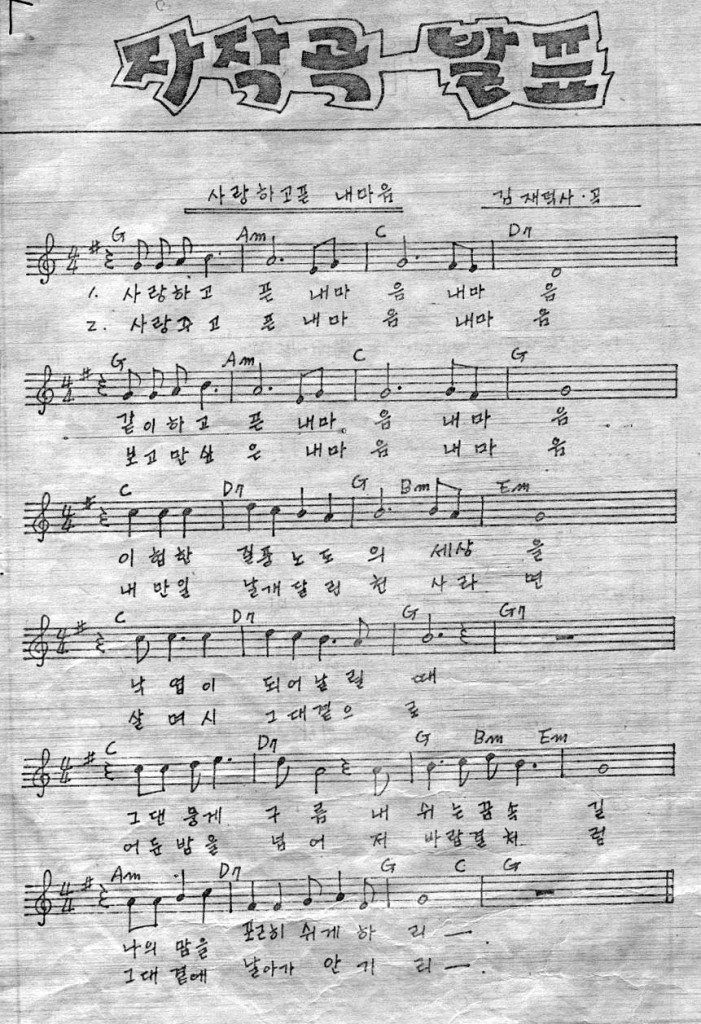 자작곡 발표
사랑하고픈 내마음 김재덕사·곡
G Am C D7
1. 사랑하고 픈 내마 음 내마 음
2. 사랑주고 픈 내마 음 내마 음
G Am C G
같이하고 픈 내마 음 내마 음
보고만싶 은 내마 음 내마 음
C D7 G Bm Em
이험한 질풍노도 의 세상 을
내만일 날개달린 천 사라 면
C D7 G G7
낙엽이 되어날릴 때
살며시 그대곁으 로
C D7 G Bm Em
그댄뭉게 구름 내 쉬는꿈속 길
어둔밤을 넘어 저 바람결처 럼
Am D7 G C G
나의 맘을 포근히 쉬게 하 리 —
그대 곁에 날아가 안 기 리 —.